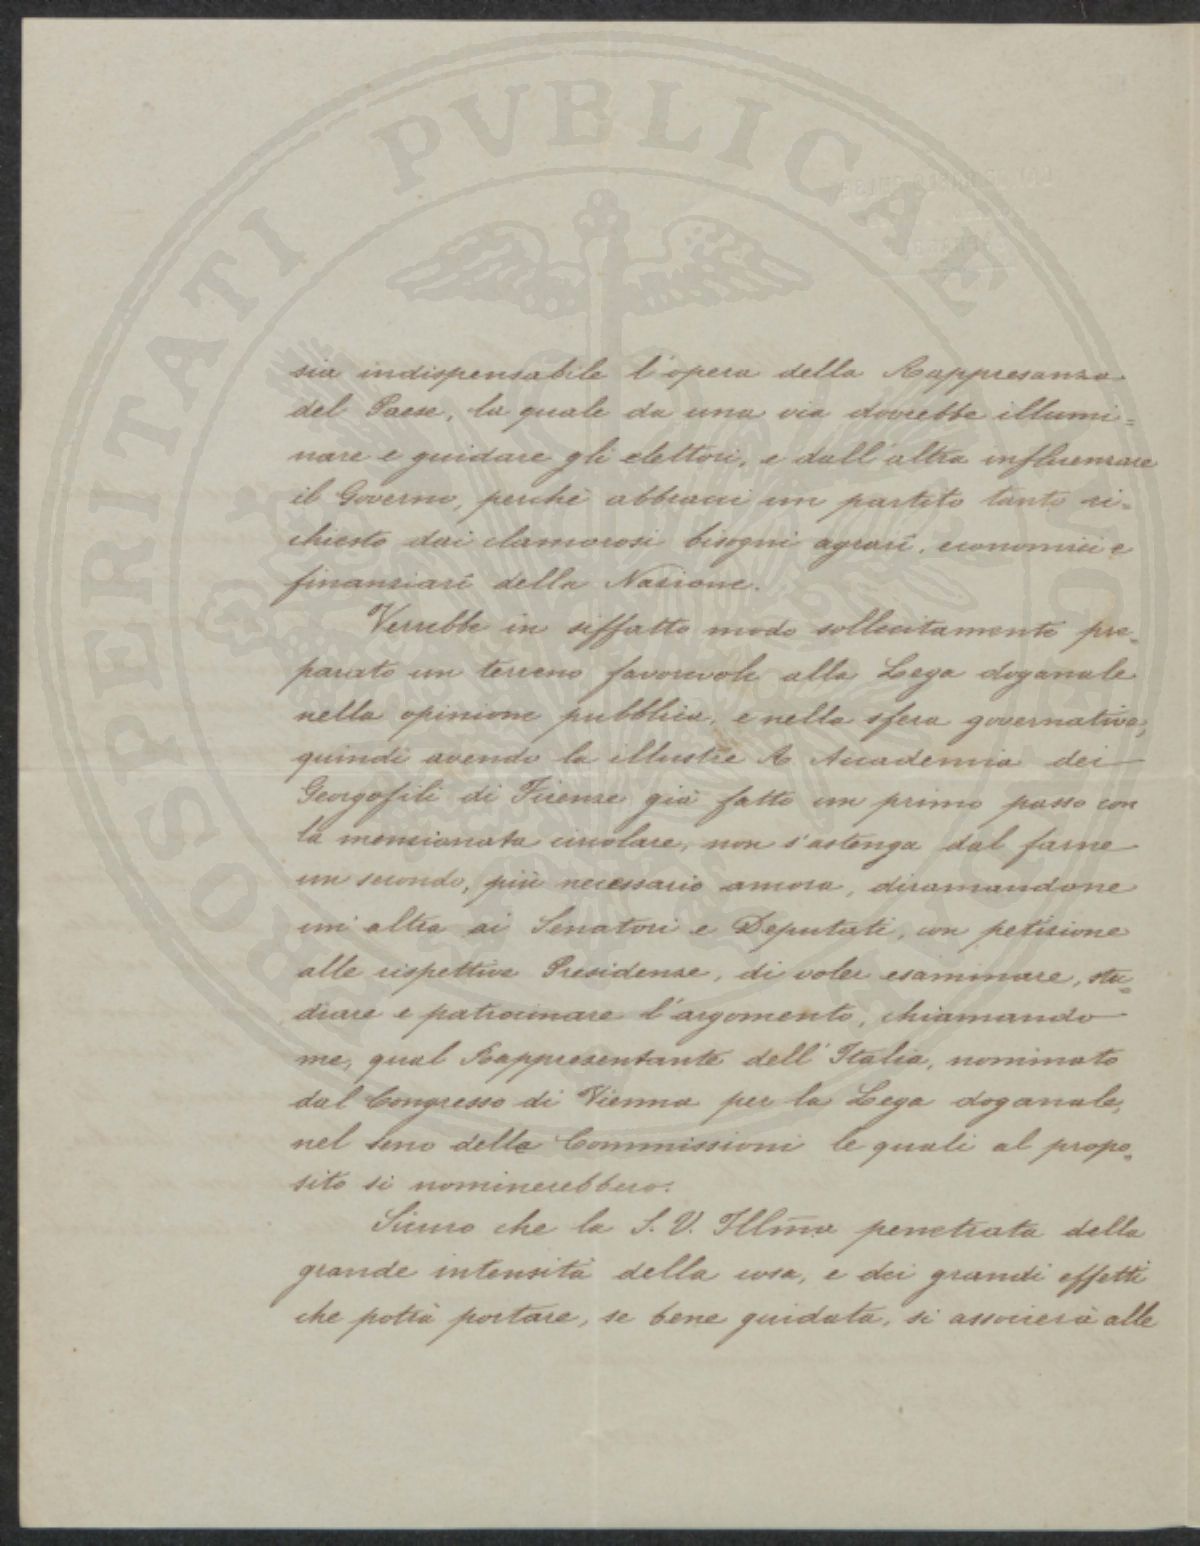 PROSPERITATI PVBLICAE
sia indispensabile l'opera della Rappresanza
del Paese, la quale da una via dovrebbe illumi=
nare e guidare gli elettori, e dall'altra influenzare
il Governo, perchè abbracci un partito tanto ri=
chiesto dai clamorosi bisogni agrarî, economici e
finanziarî della Nazione.
Verrebbe in siffatto modo sollecitamente pre=
parato un terreno favorevole alla Lega doganale
nella opinione pubblica, e nella sfera governativa;
quindi avendo la illustre R. Accademia dei
Georgofili di Firenze già fatto un primo passo con
la menzionata circolare, non s'astenga dal farne
un secondo, più necessario ancora, diramandone
un'altra ai Senatori e Deputati, con petizione
alle rispettive Presidenze, di voler esaminare, stu=
diare e patrocinare l'argomento, chiamando
me, qual Rappresentante dell'Italia, nominato
dal Congresso di Vienna per la Lega doganale,
nel seno delle Commissioni le quali al propo=
sito si nominerebbero.
Sicuro che la S. V. Illma penetrata della
grande intensità della cosa, e dei grandi effetti
che potrà portare, se bene guidata, si associerà alle